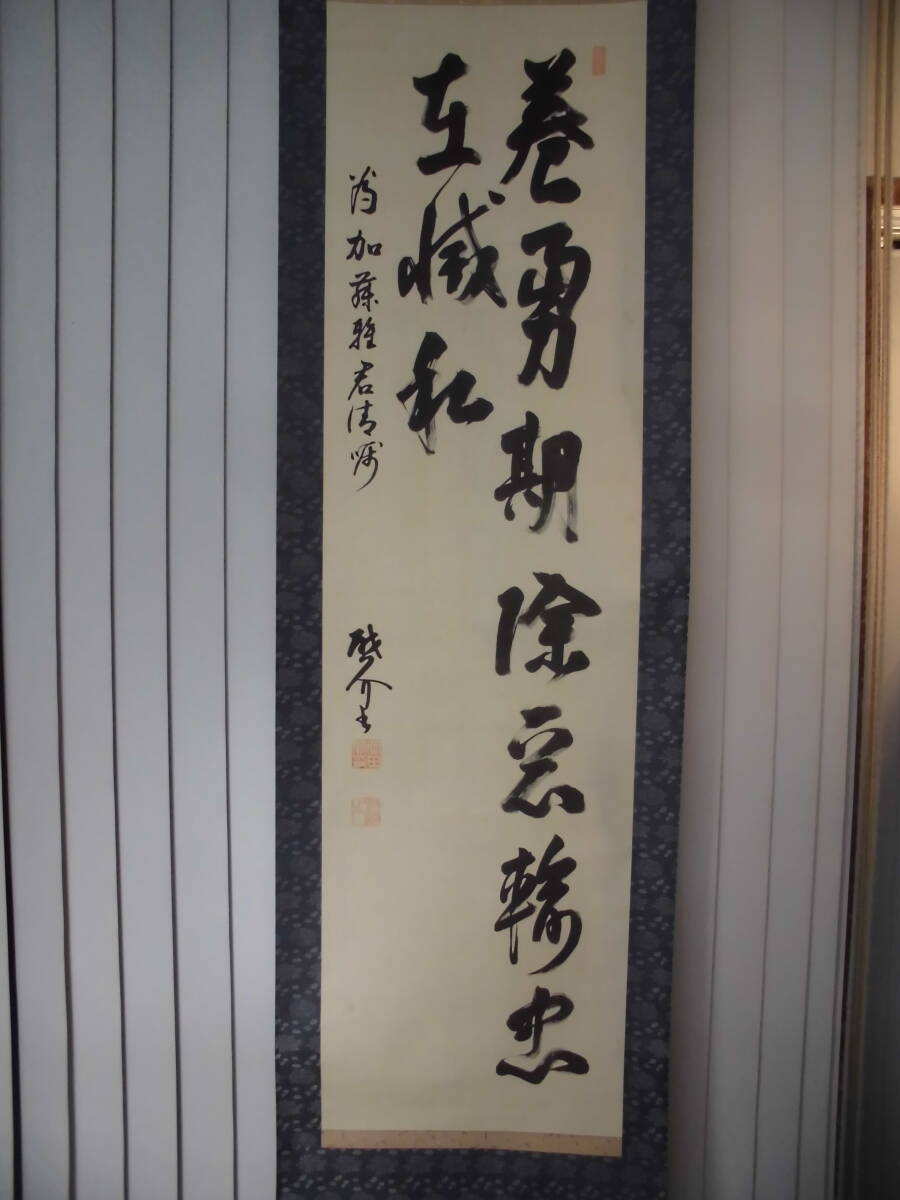 養勇期除悪輸忠
在滅私
為加藤雅君清嘱
啓介書